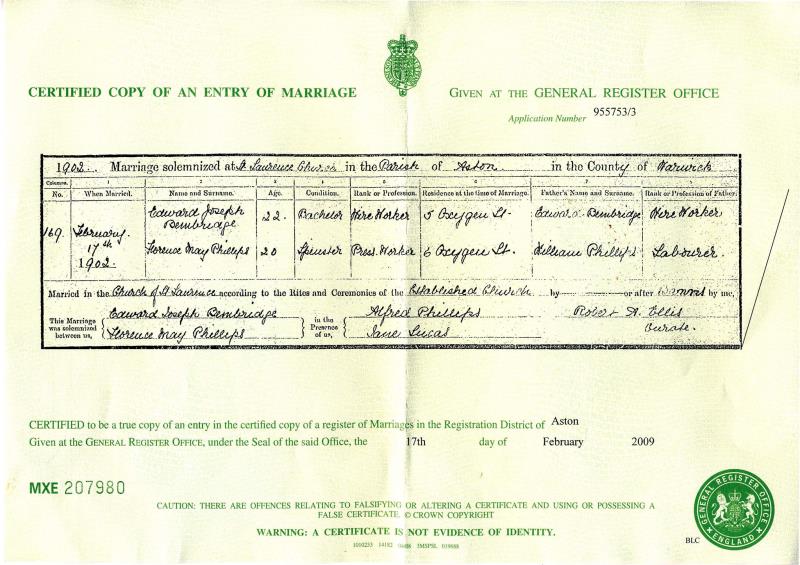 CERTIFIED COPY OF AN ENTRY OF MARRIAGE
GIVEN AT THE GENERAL REGISTER OFFICE
Application Number 955753/3
1902. Marriage solemnized at St Laurence Church in the Parish of Aston in the County of Warwick
Columns. 1 2 3 4 5 6 7 8
No. When Married. Name and Surname. Age. Condition. Rank or Profession. Residence at the time of Marriage. Father's Name and Surname. Rank or Profession of Father.
169. February 17th 1902. Edward Joseph Bembridge 22. Bachelor Wire Worker 5 Oxygen St. Edward Bembridge Wire Worker
Florence May Phillips 20 Spinster Press Worker 6 Oxygen St. William Phillips Labourer.
Married in the Church of St Laurence according to the Rites and Ceremonies of the Established Church by or after Banns by me,
This Marriage was solemnized between us, Edward Joseph Bembridge Florence May Phillips in the Presence of us, Alfred Phillips Jane Lucas Robert A. Ellis Curate.
CERTIFIED to be a true copy of an entry in the certified copy of a register of Marriages in the Registration District of Aston
Given at the GENERAL REGISTER OFFICE, under the Seal of the said Office, the 17th day of February 2009
MXE 207980
CAUTION: THERE ARE OFFENCES RELATING TO FALSIFYING OR ALTERING A CERTIFICATE AND USING OR POSSESSING A
FALSE CERTIFICATE. © CROWN COPYRIGHT
WARNING: A CERTIFICATE IS NOT EVIDENCE OF IDENTITY.
GENERAL REGISTER OFFICE
ENGLAND
BLC